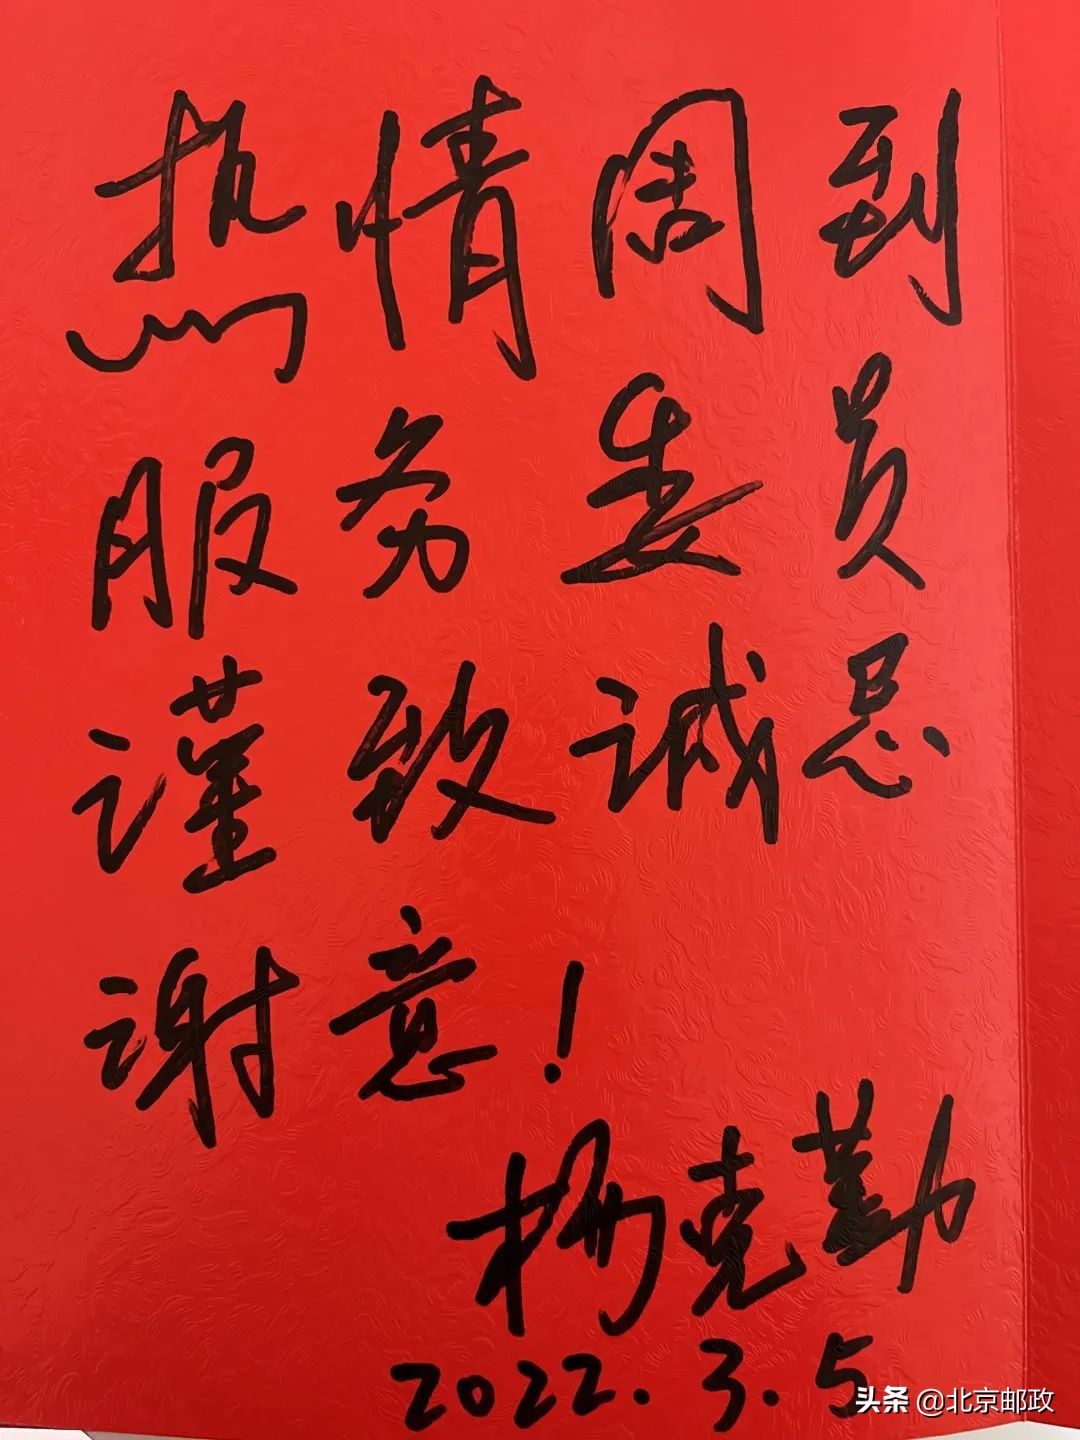 热情周到
服务委员
谨致诚恳
谢意！
杨克勤
2022.3.5
头条 @北京邮政